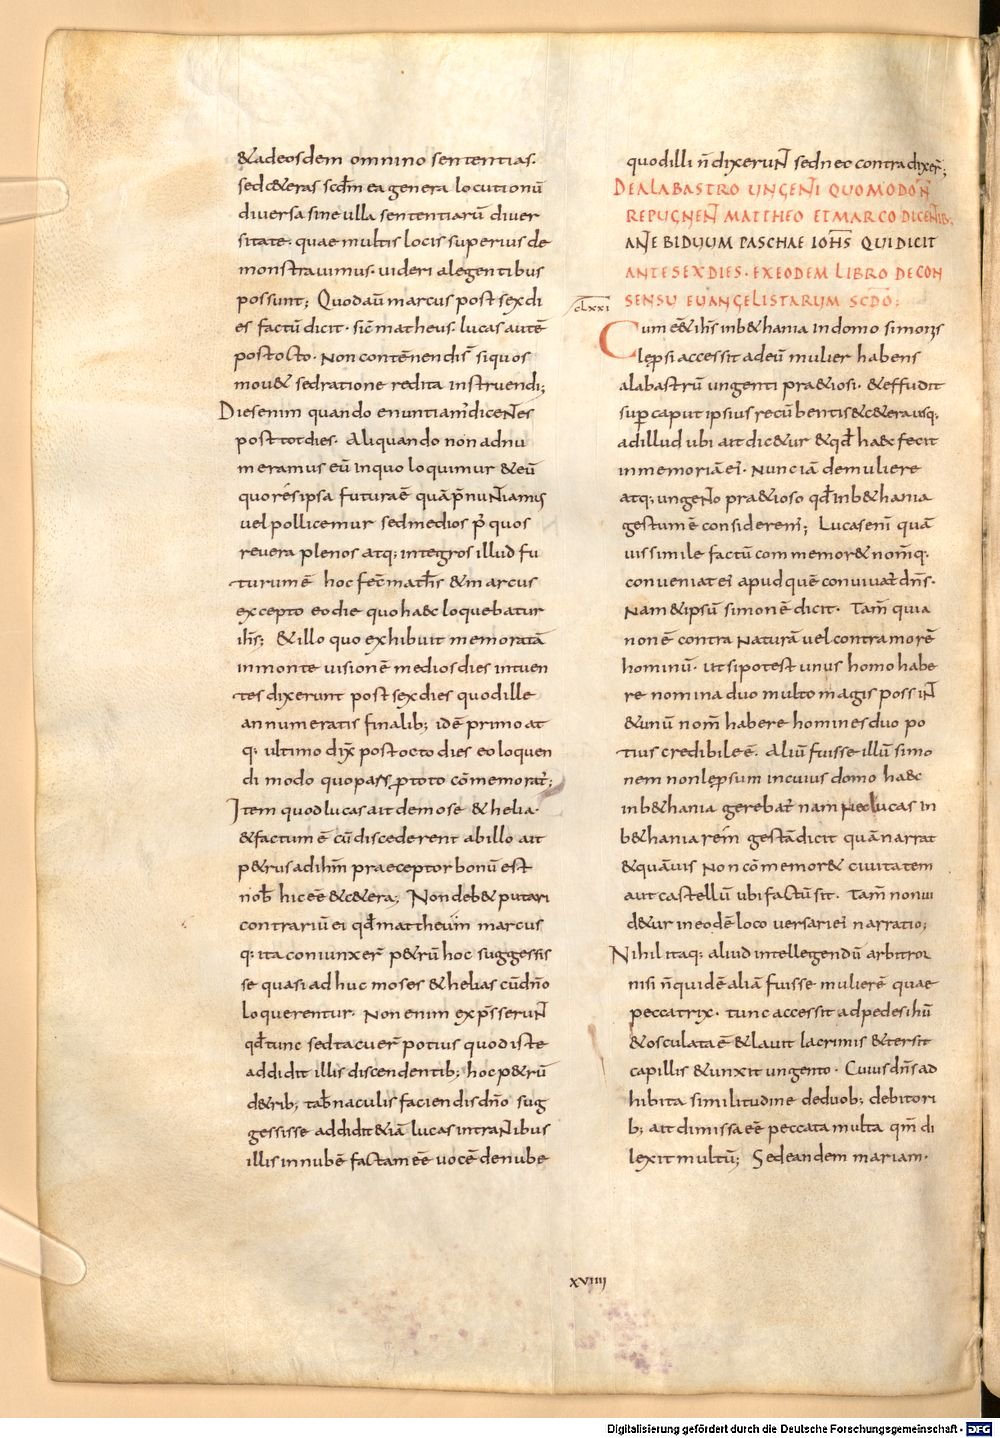 &adeosdem omnino sententias.
sedc&eras scd̄m ea genera locutionū
diuersa sine ulla sententiarū diuer
sitate. quae multis locis superius de
monstrauimus. uideri alegentibus
possunt; Quodaū marcus post sex di
es factū dicit. sic̄ matheus. lucas autē
postocto. Non contēnendis̄ siquos
mou& sedratione reddita instruendi;
Diesenim quando enuntiam̄ diceNtes
post totdies. Aliquando non adnu
meramus eū inquo loquimur &eū
quo res ipsa futurāē quāp̄nuNtiamus
uel pollicemur sedmedios p̄ quos
reuera plenos atq; integros illud fu
turumē hoc fec̄ math̄s &marcus
excepto eodie quo haec loquebatur
ih̄s; &illo quo exhibuit memoratā
inmonte uisionē medios dies intuen
tes dixerunt post sex dies quodille
annumeratis finalib; idē primo at
q· ultimo dix̄ postocto dies eo loquen
di modo quo pars p toto cōmemorat̄;
Item quod lucas ait demose &helia.
&factum ē cū discederent abillo ait
p&rus adihm̄ praeceptor bonū est
nob̄ hic eē &c&era; Non deb& putari
contrariū ei qd̄ mattheus marcus
q· ita coniunxer̄ p&rū hoc suggessis
se quasi adhuc moses &helias cūdn̄o
loquerentur. Non enim exp̄sseruNt
qd̄ tunc sedtacuer̄ potius quod iste
addidit illis discendentib; hoc p&rū
de trib; tab̄naculis faciendis dn̄o sug
gessisse addidit &iā lucas intraNtibus
illis innubē factam eē uocē denube
quodilli n̄ dixeruNt sednec contradixer̄;
DEALABASTRO UNGENTI QUOMODO N̄
REPUGNENT MATTHEO ET MARCO DICENTIB;
ANTE BIDUUM PASCHAE IOHS̄ QUI DICIT
ANTE SEX DIES. EX EODEM LIBRO DE CON
SENSU EUANGELISTARUM SCD̄O;
clxxi
Cum eē& ih̄s inb&hania in domo simonis
lepsi accessit adeū mulier habens
alabastrū ungenti pra&iosi. &effudit
sup̄ caput ipsius recūbentis &c&era usq;
adillud ubi ait dic&ur &qd̄ haec fecit
inmemoriā ei'. Nunc iā demuliere
atq; ungeNto pra&ioso qd̄ inb&hania
gestumē considerem'; Lucasenī quā
uis simile factū commemor& nom̄q·
conueniat ei' apud quē conuiuat̄ dn̄s.
Nam &ipsū simonē dicit. Tam̄ quia
nonē contra naturā uel contra morē
hominū. ut sipotest unus homo habe
re nomina duo multo magis possiNt
&unū nom̄ habere homines duo po
tius credibile ē. Aliū fuisse illū simo
nem non lepsum incuius domo haec
inb&hania gerebat̄ nam nec lucas in
b&hania rem gestā dicit quā narrat
&quāuis Non cōmemor& ciuitatem
aut castellū ubi factū sit. Tam̄ nonui
d&ur ineodē loco uersari ei' narratio;
Nihil itaq; aliud intellegendū arbitror
nisi n̄ quidē aliā fuisse mulierē quae
peccatrix. tunc accessit ad pedes ihū
&osculata ē &lauit lacrimis &tersit
capillis &unxit ungento. Cuius dn̄s ad
hibita similitudine deduob; debitori
b; ait dimissa eē peccata multa qm̄ di
lexit multū; Sed eandem mariam.
xviiii
Digitalisierung gefördert durch die Deutsche Forschungsgemeinschaft - DFG